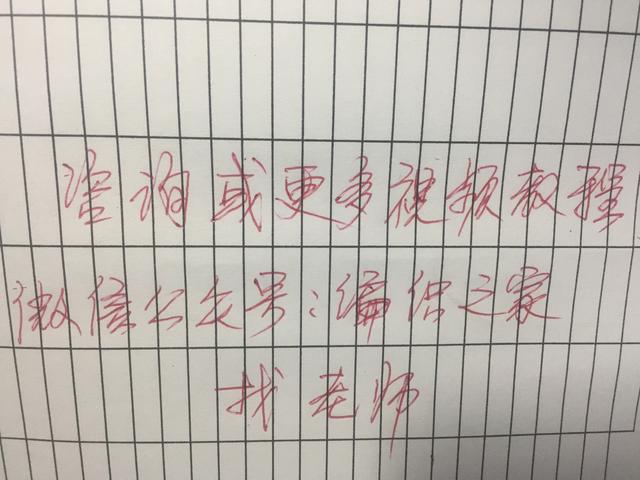 咨询或更多视频教程
微信公众号:编织之家
找老师